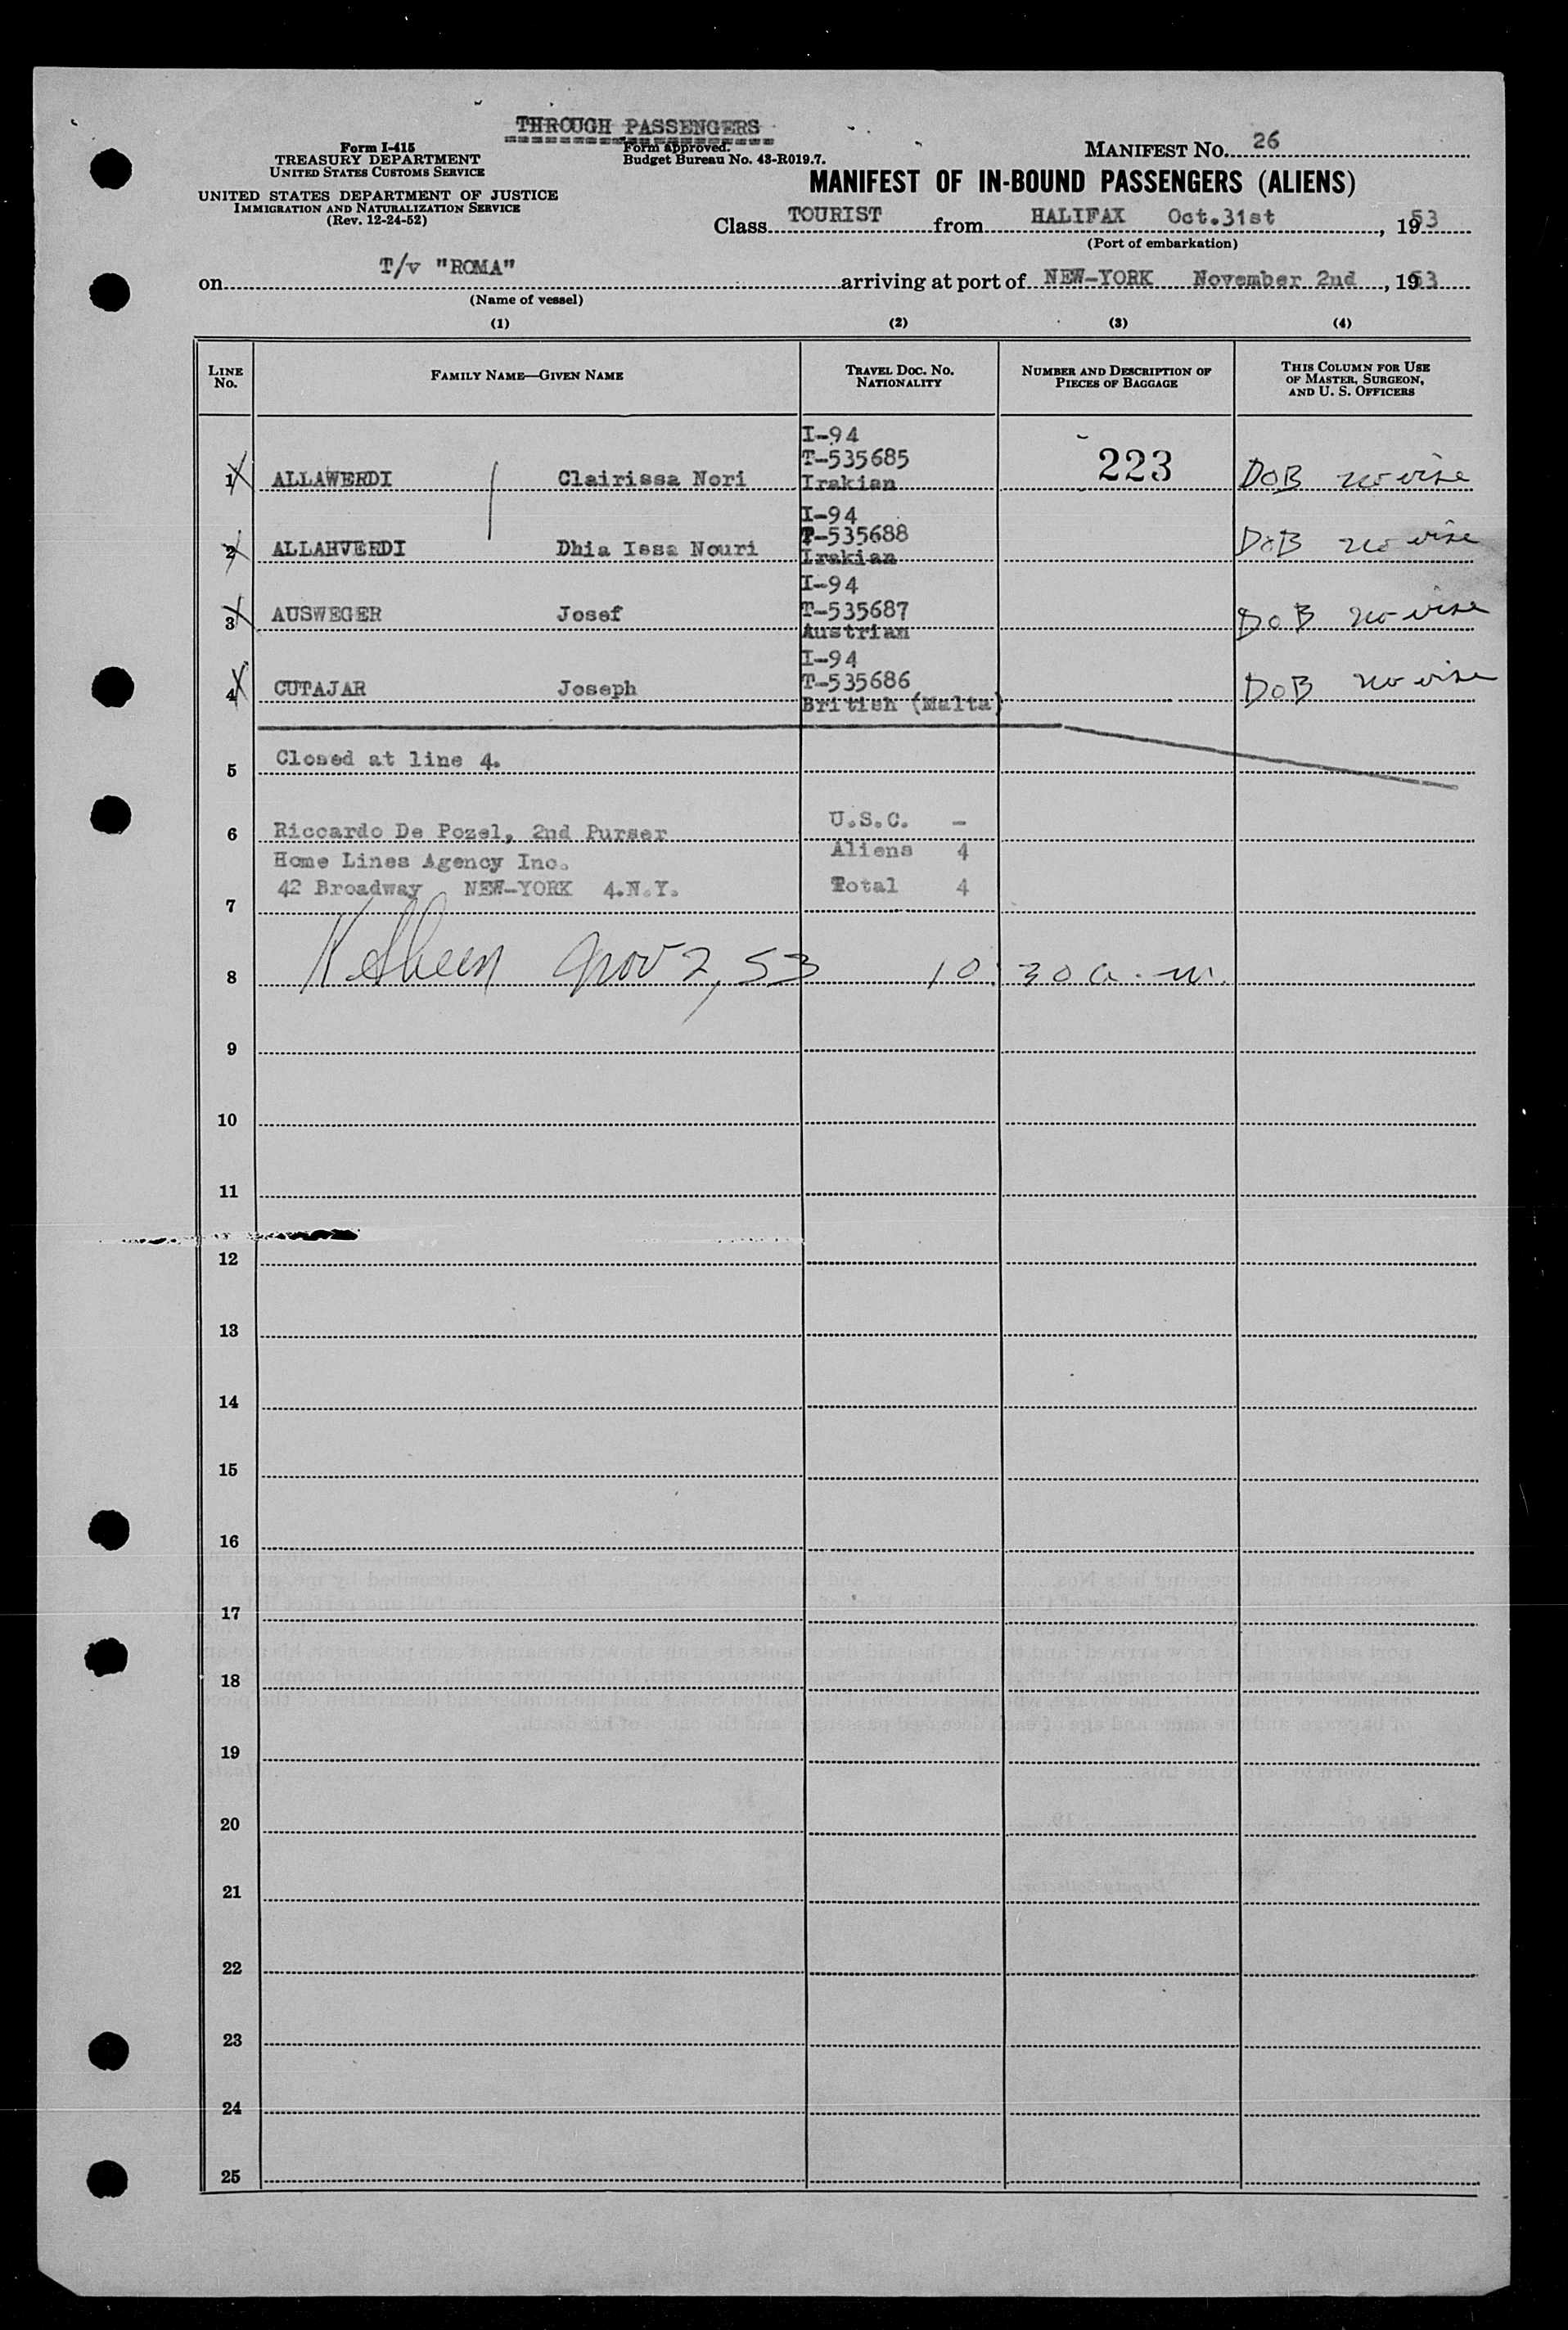 THROUGH PASSENGERS
Form I-415
TREASURY DEPARTMENT
UNITED STATES CUSTOMS SERVICE
UNITED STATES DEPARTMENT OF JUSTICE
IMMIGRATION AND NATURALIZATION SERVICE
(Rev. 12-24-52)
Form approved.
Budget Bureau No. 43-R019.7.
MANIFEST NO. 26
MANIFEST OF IN-BOUND PASSENGERS (ALIENS)
Class TOURIST from HALIFAX Oct.31st, 1953
(Port of embarkation)
on T/v "ROMA" arriving at port of NEW-YORK November 2nd, 1953
(Name of vessel)
(1) (2) (3) (4)
LINE NO.
FAMILY NAME—GIVEN NAME
TRAVEL DOC. NO. NATIONALITY
NUMBER AND DESCRIPTION OF PIECES OF BAGGAGE
THIS COLUMN FOR USE OF MASTER, SURGEON, AND U. S. OFFICERS
I-94
T-535685
1 ALLAWERDI Clairissa Nori Irakian 223 DOB no vise
I-94
T-535688
2 ALLAHVERDI Dhia Issa Nouri Irakian DOB no vise
I-94
T-535687
3 AUSWEGER Josef Austrian DOB no vise
I-94
T-535686
4 CUTAJAR Joseph British (Malta) DOB no vise
5 Closed at line 4.
6 Riccardo De Pozel, 2nd Purser U.S.C. -
Home Lines Agency Inc. Aliens 4
42 Broadway NEW-YORK 4.N.Y. Total 4
7
8 Nov 2, 53 10:30 a.m.
9
10
11
12
13
14
15
16
17
18
19
20
21
22
23
24
25